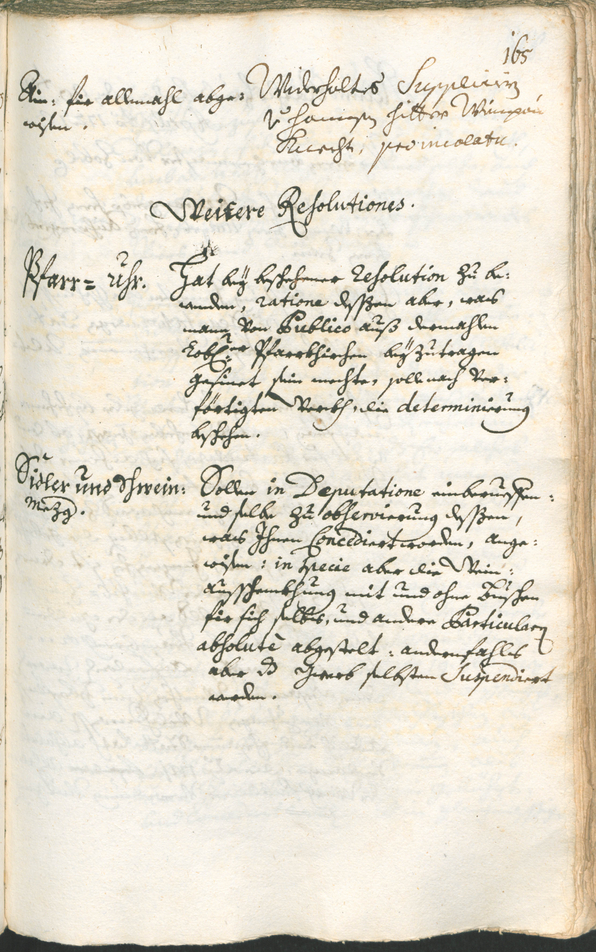 165
Ein: für allemahl abge=
wisen.
Widerholtes Supplicirn
Thomasen
Knecht, pro incolatu.
Weitere Resolutiones.
Pfarr= Uhr.
Hat bey beschehener Resolution zu be:
wenden, ratione dessen aber, was
mann von Publico auß dermahlen
Löbl:er Pfarrkirchen beyzutragen
gesinet sein mechte, soll nach ver:
förtigten Werkh, die determinierung
beschehen.
Sidler und Schwein:
Mezg.
Sollen in Deputatione einberueffen:
und selbe zu observierung dessen,
was Ihnen concediert worden, ange:
wisen: in specie aber die Wein:
ausschenkhung mit und ohne Buschen
für sich selbst, und andere Particularn
absolutè abgestelt: andernfahls
aber dz Gwerb selbsten Suspendiert
werden.